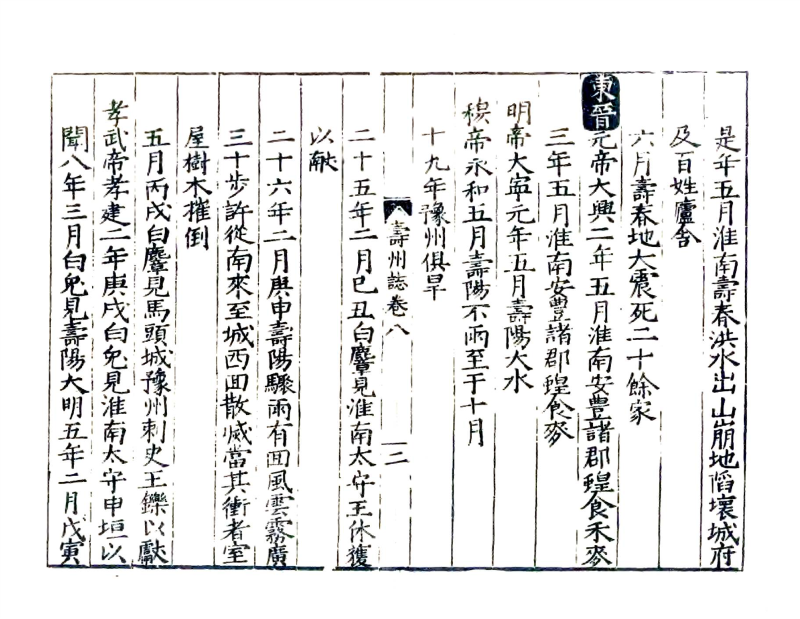 是年五月淮南壽春洪水出山崩地陷壞城府
及百姓廬舍
六月壽春地大震死二十餘家
東晉元帝大興二年五月淮南安豐諸郡蝗食禾麥
三年五月淮南安豐諸郡蝗食麥
明帝大寜元年五月壽陽大水
穆帝永和五月壽陽不雨至于十月
十九年豫州俱旱
壽州誌卷八
二
二十五年二月己丑白麞見淮南太守王休獲
以献
二十六年二月庚申壽陽驟雨有囬風雲霧廣
三十步許從南來至城西囬散滅當其衝者室
屋樹木摧倒
五月丙戌白麞見馬頭城豫州刺史王鑠以獻
孝武帝孝建二年庚戌白兔見淮南太守申垣以
聞八年三月白兔見壽陽大明五年二月戊寅